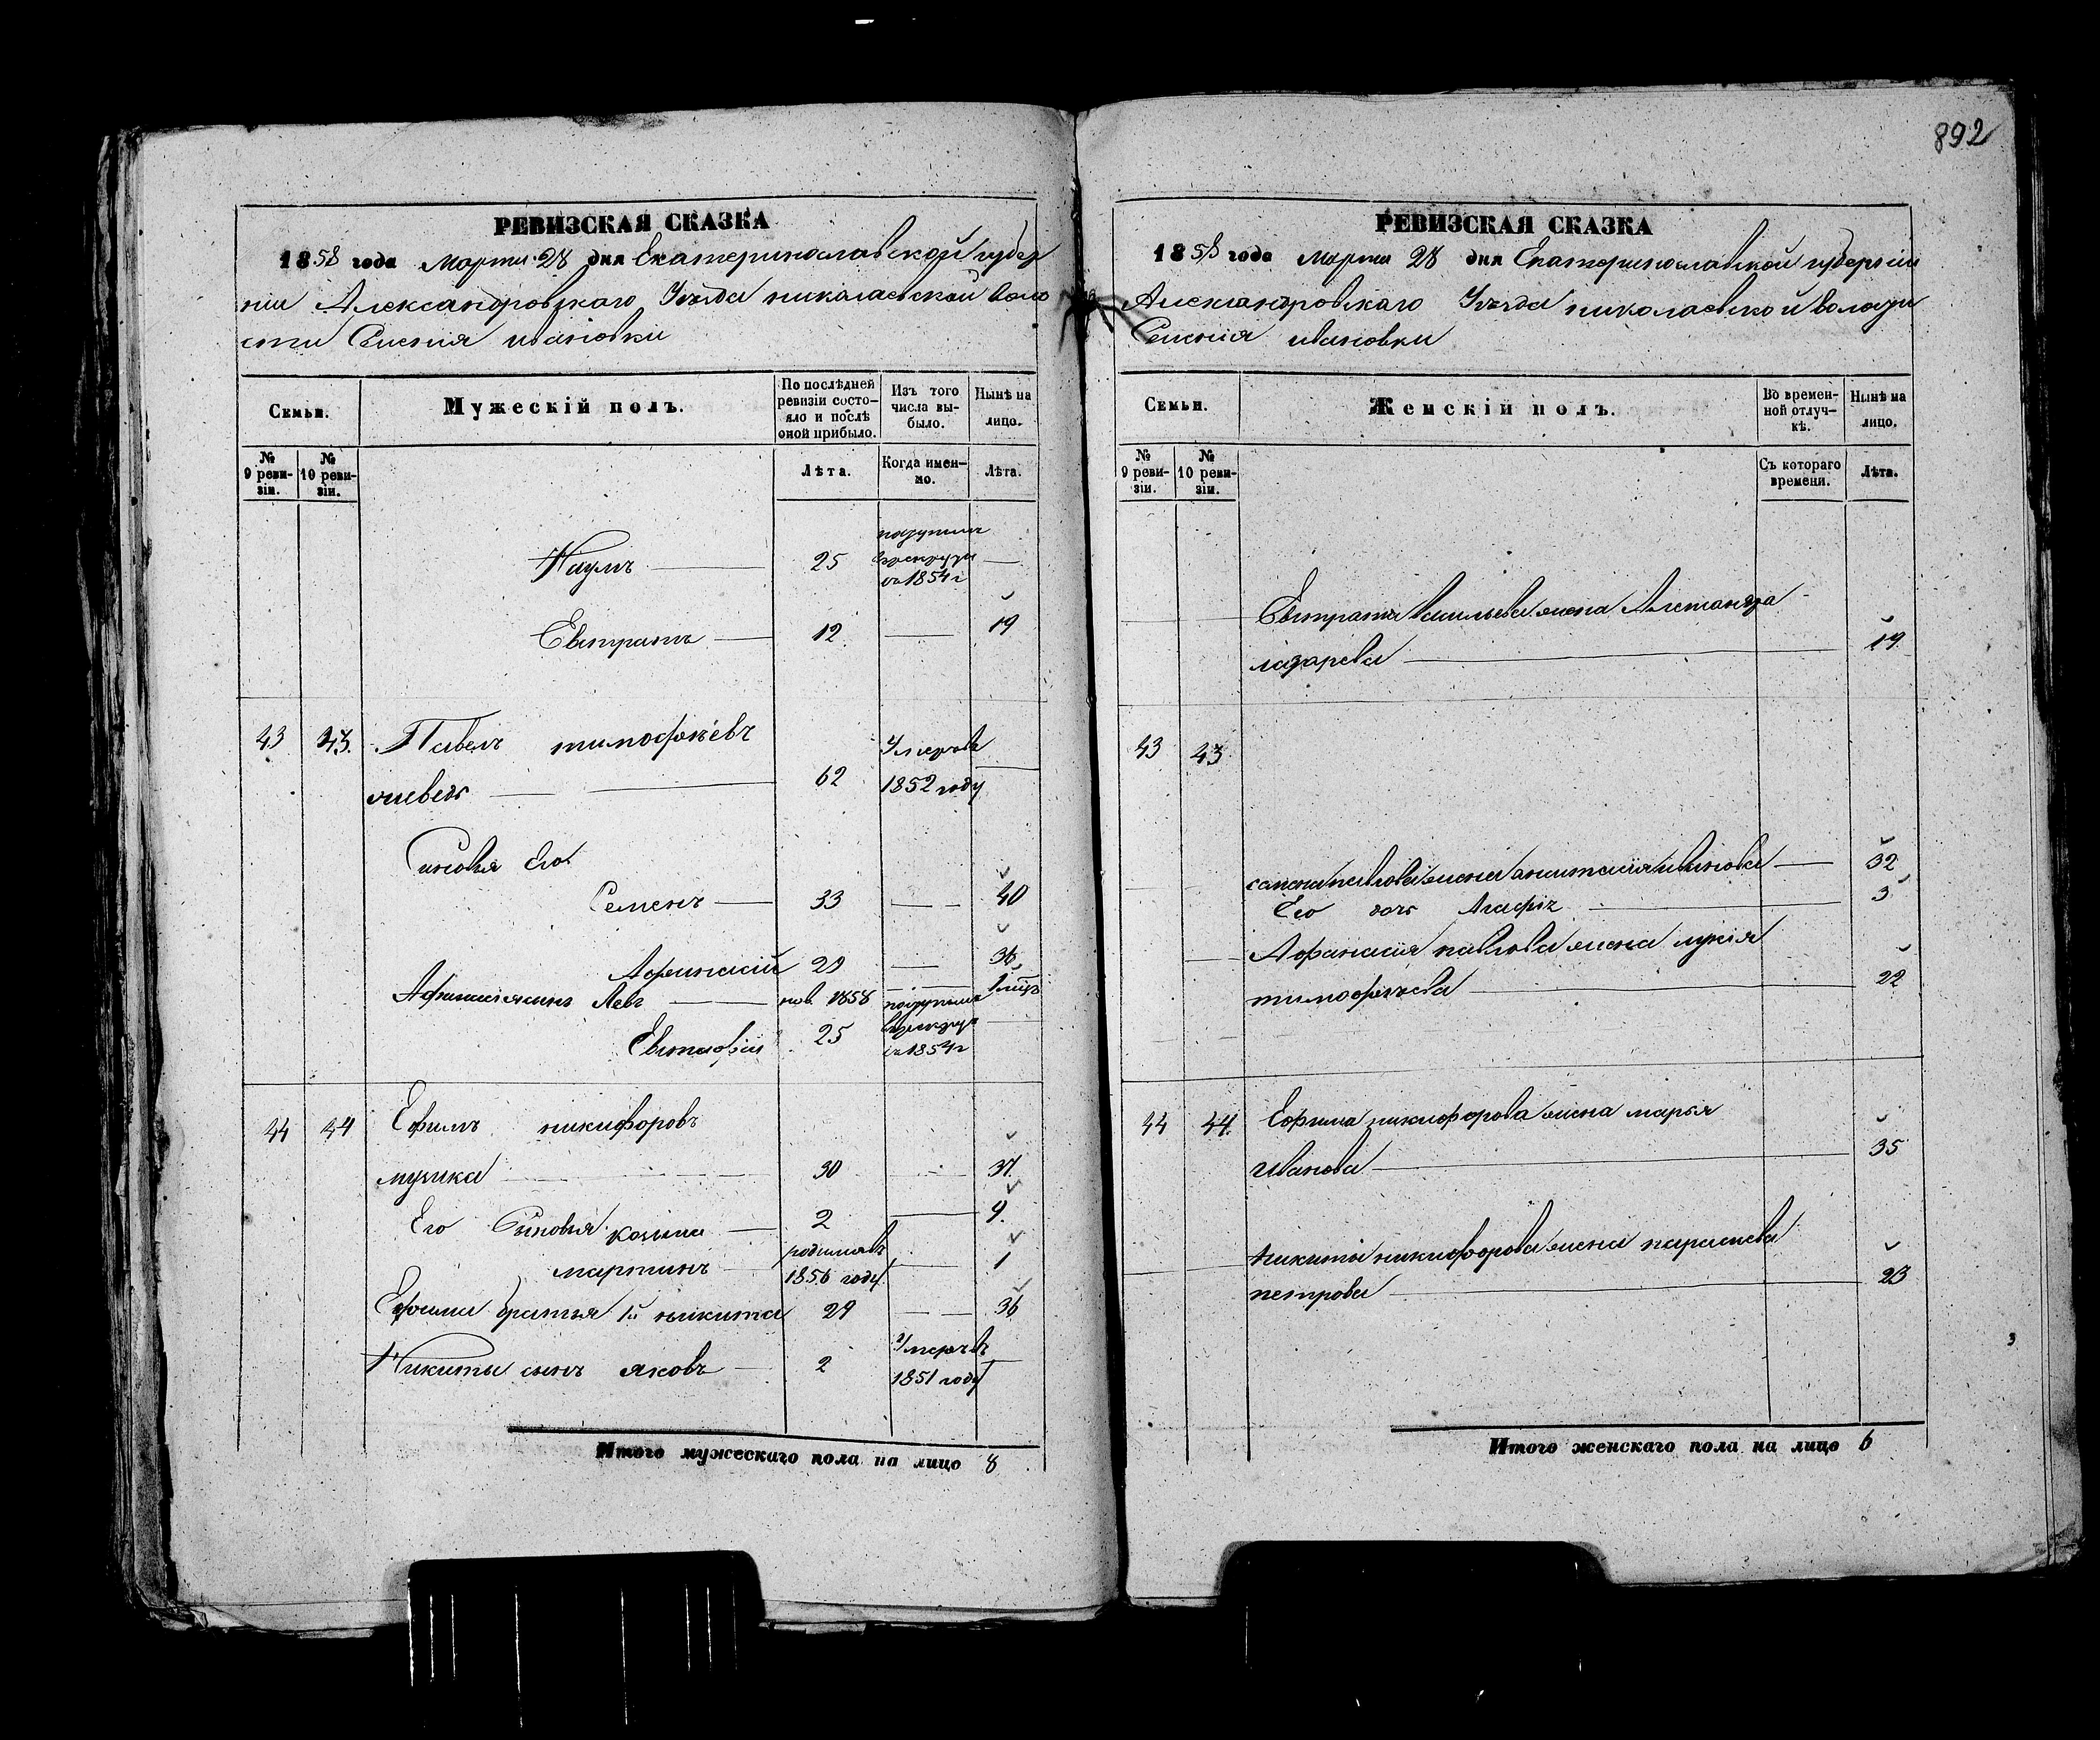 892
РЕВИЗСКАЯ СКАЗКА
1858 года Марта 28 дня Екатеринославской губер
нии Александровскаго Уезда николаевской воло
сти Селения ивановки
Семьи.
Мужескій полъ.
По послѣдней ревизіи состояло и послѣ оной прибыло.
Изъ того числа выбыло.
Нынѣ на лицо.
№ 9 ревизіи.
№ 10 ревизіи.
Лѣта.
Когда именно.
Лѣта.
Наумъ 25 1854 г
Евтратъ 12 19
43 43. Павелъ тимофѣевъ Умеръ въ
62 1852 году
Сыновья Его
Семенъ 33 40
Афанасій 29 36
Афанасія сынъ Левъ нов 1858
25 1854 г
44 44 Ефимъ никифоровъ
30 37
Его Сыновья козьма 2 9.
родился въ
мартинъ 1856 году 1
Ефима братья 1й никита 29 36
Никиты сынъ яковъ 2 Умеръ въ
1851 году
Итого мужескаго пола на лицо 8
РЕВИЗСКАЯ СКАЗКА
1858 года Марта 28 дня Екатеринославской губерніи
Александровскаго Уезда николаевской волости
Селенія ивановки
Семьи.
Женскій полъ.
Во временной отлучкѣ.
Нынѣ на лицо.
№ 9 ревизіи.
№ 10 ревизіи.
Съ котораго времени.
Лѣта.
Евтрата васильева жена Александра
лазарева 19
43 43
жена анастасія иванова 32
Его дочь Агафія 3
Афанасія павлова жена лукія
тимофѣева 22
44 44. Ефима никифорова жена марья
Иванова 35
никиты никифорова жена параскева
петрова 23
Итого женскаго пола на лицо 6